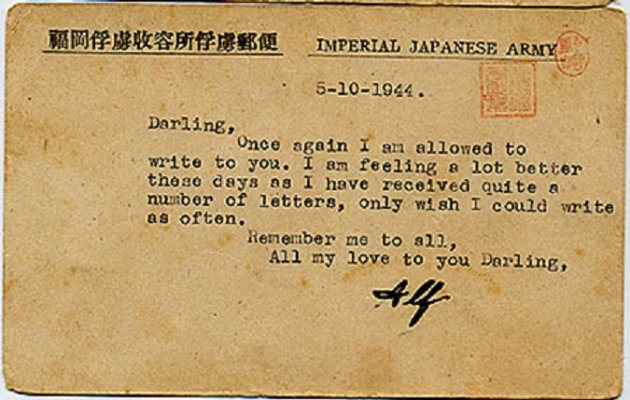 福岡俘虜収容所俘虜郵便 IMPERIAL JAPANESE ARMY
5-10-1944.
Darling,
Once again I am allowed to
write to you. I am feeling a lot better
these days as I have received quite a
number of letters, only wish I could write
as often.
Remember me to all,
All my love to you Darling,
Alf